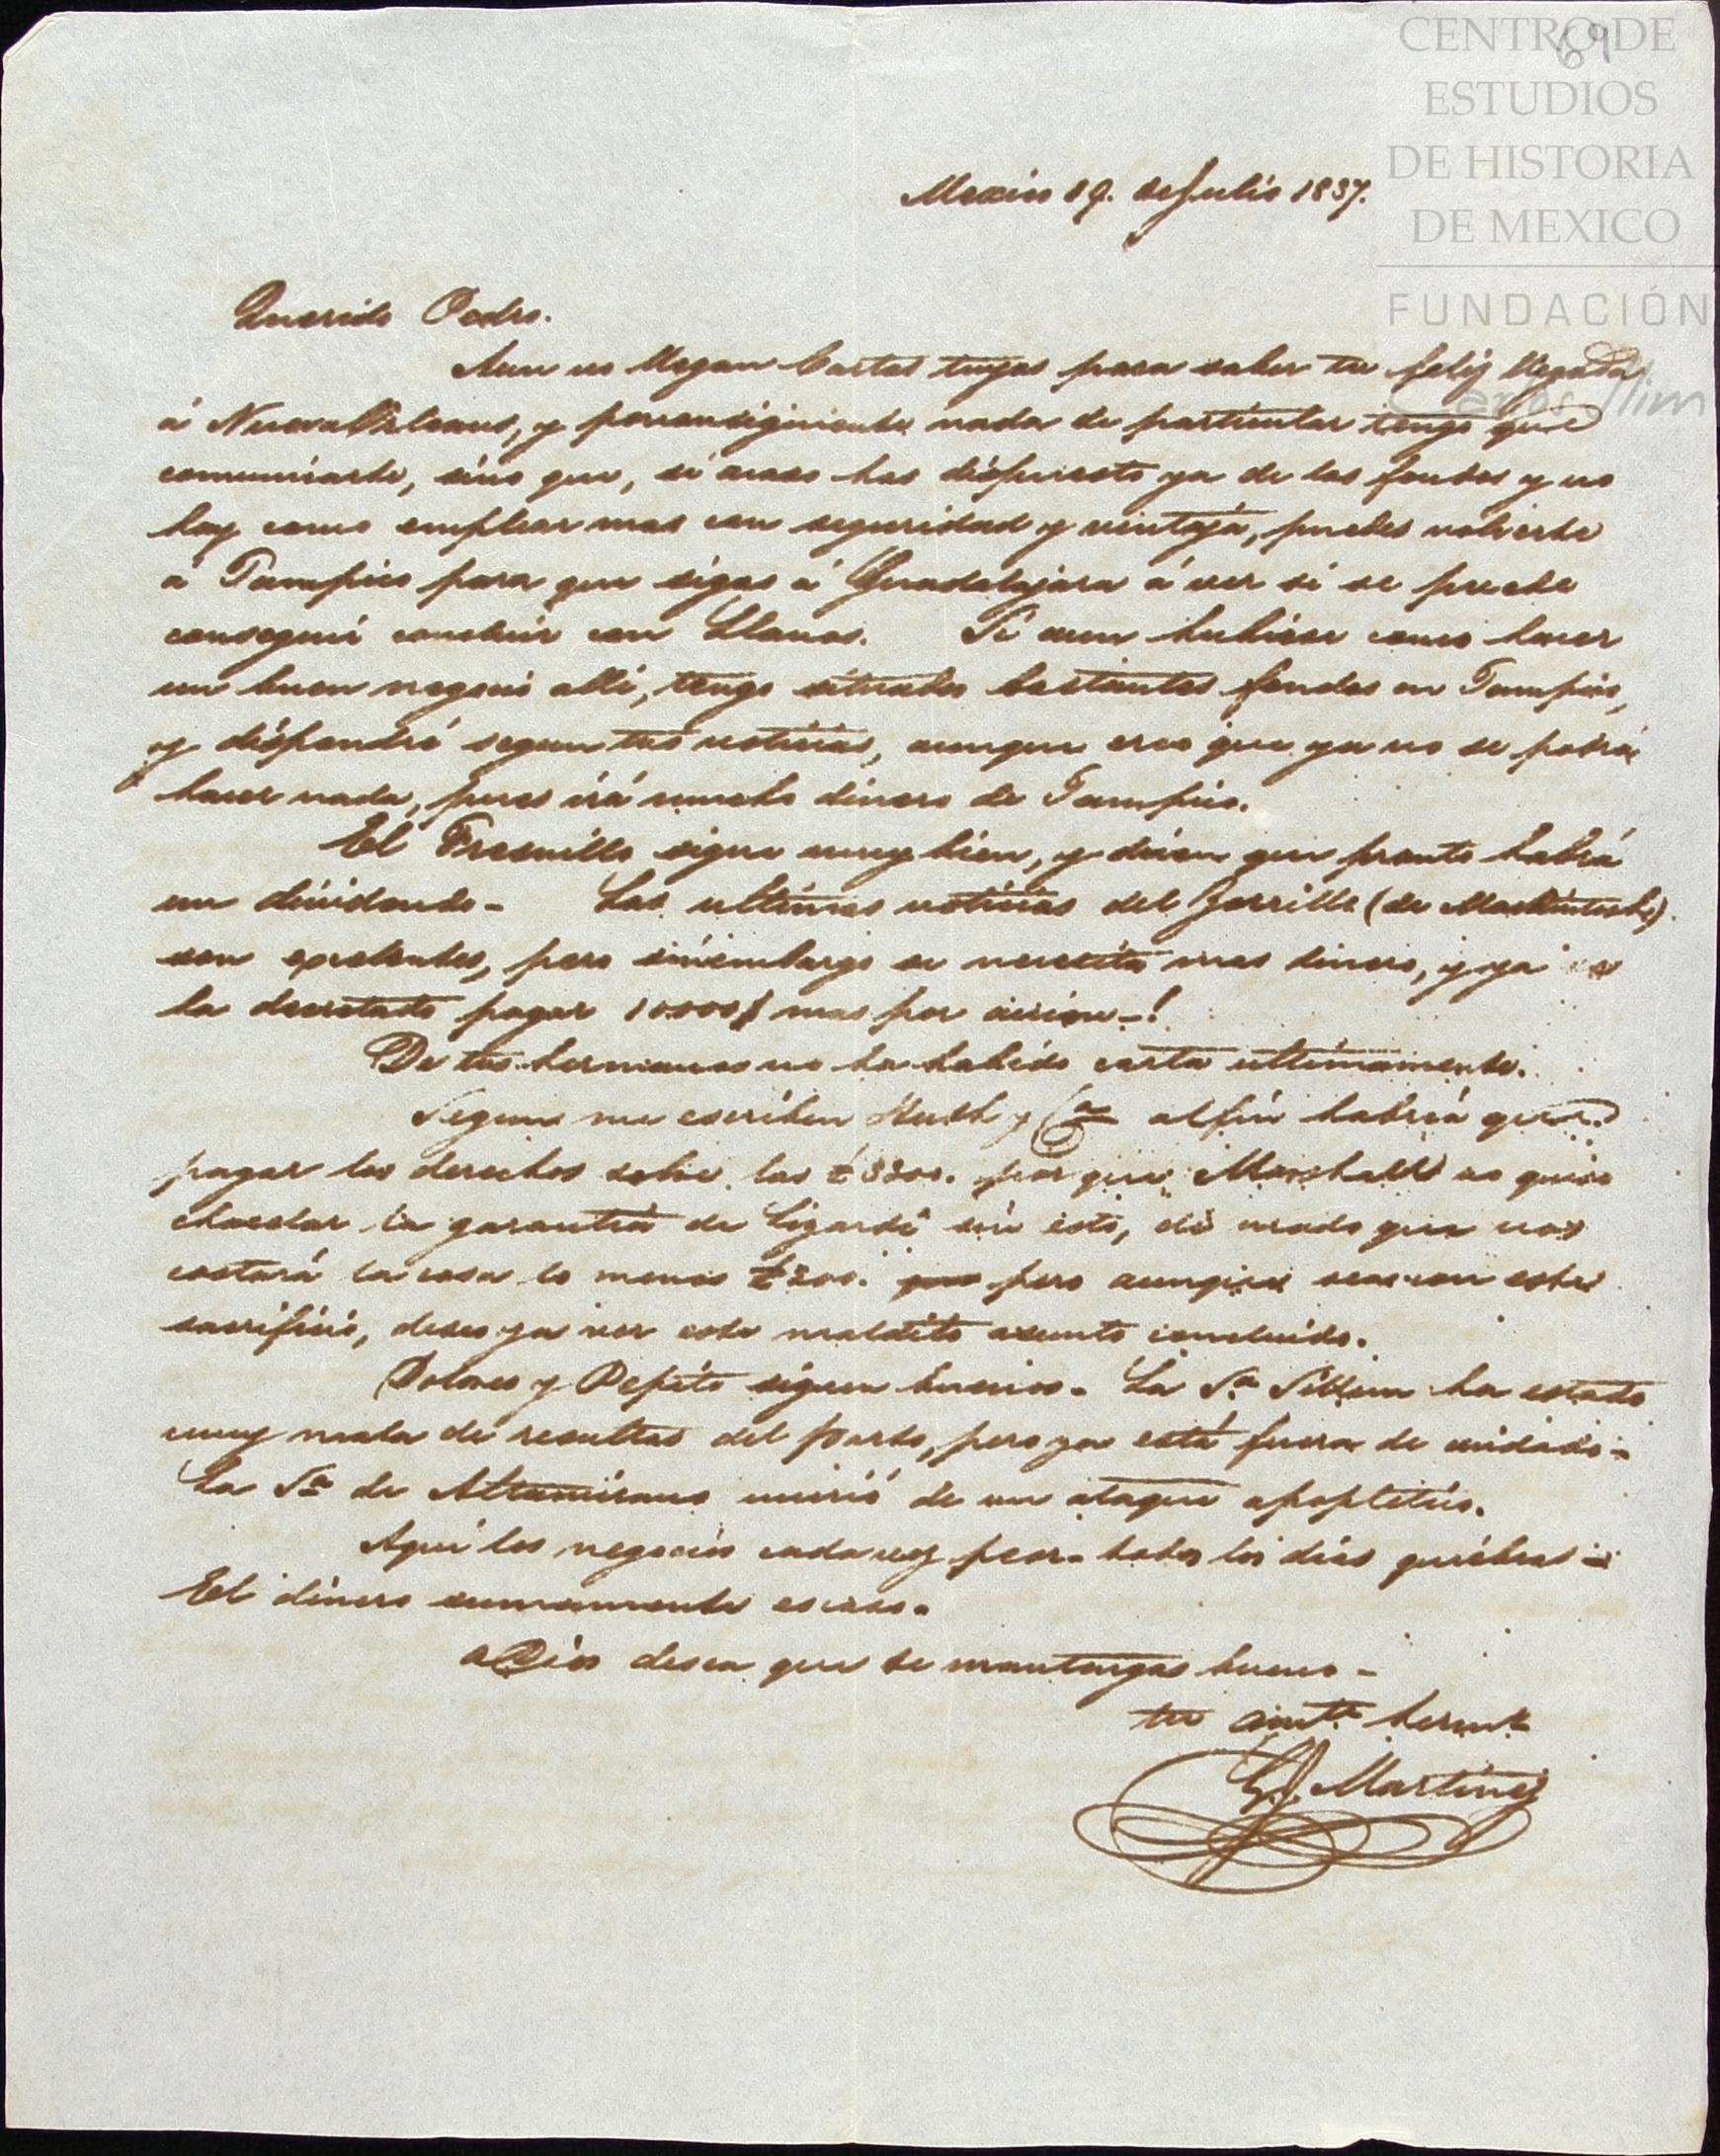 CENTRO DE
ESTUDIOS
DE HISTORIA
DE MEXICO
FUNDACIÓN
Carlos Slim
69
Mexico 19. de Julio 1837.
Querido Pedro.
Aun no llegan Cartas tuyas para saber tu feliz llegada
á Nueva Orleans, y porconsiguiente nada de particular tengo que
comunicarte, sino que, si acaso has dispuesto ya de los fondos y no
hay como emplear mas con seguridad y ventaja, puedes volverte
á Tampico para que sigas á Guadalajara á ver si se puede
conseguir concluir con Llanos. Si aun hubiese como hacer
un buen negocio alli, tengo situados bastantes fondos en Tampico,
y dispondré segun tus noticias, aunque creo que ya no se podrá
hacer nada, pues irá mucho dinero de Tampico.
El Fresnillo sigue muy bien, y dicen que pronto habrá
un dividendo - Las ultimas noticias del Zorrillo (de Mackintosh)
son excelentes, pero sinembargo se necesita mas dinero, y ya se
ha decretado pagar 10000$ mas por accion -!
De tus hermanos no ha habido carta ultimamente.
Segun me escriben Huth y Ca al fin habrá que
pagar los derechos sobre las £3200. por que Marshall no quiso
chancelar la garantia de Lizardi sin esto, de modo que nos
costará la cosa lo menos £200. pero aunque sea con este
sacrificio, deseo ya ver este maldito asunto concluido.
Dolores y Pepito siguen buenos - La Sa. Sillem ha estado
muy mala de resultas del parto, pero ya está fuera de cuidado -
La Sa de Altamirano murió de un ataque apopletico.
Aqui los negocios cada vez peor - todos los dias quiebras -
El dinero sumamente escaso.
aDios desea que te mantengas bueno -
tu amte. hermo
Martinez